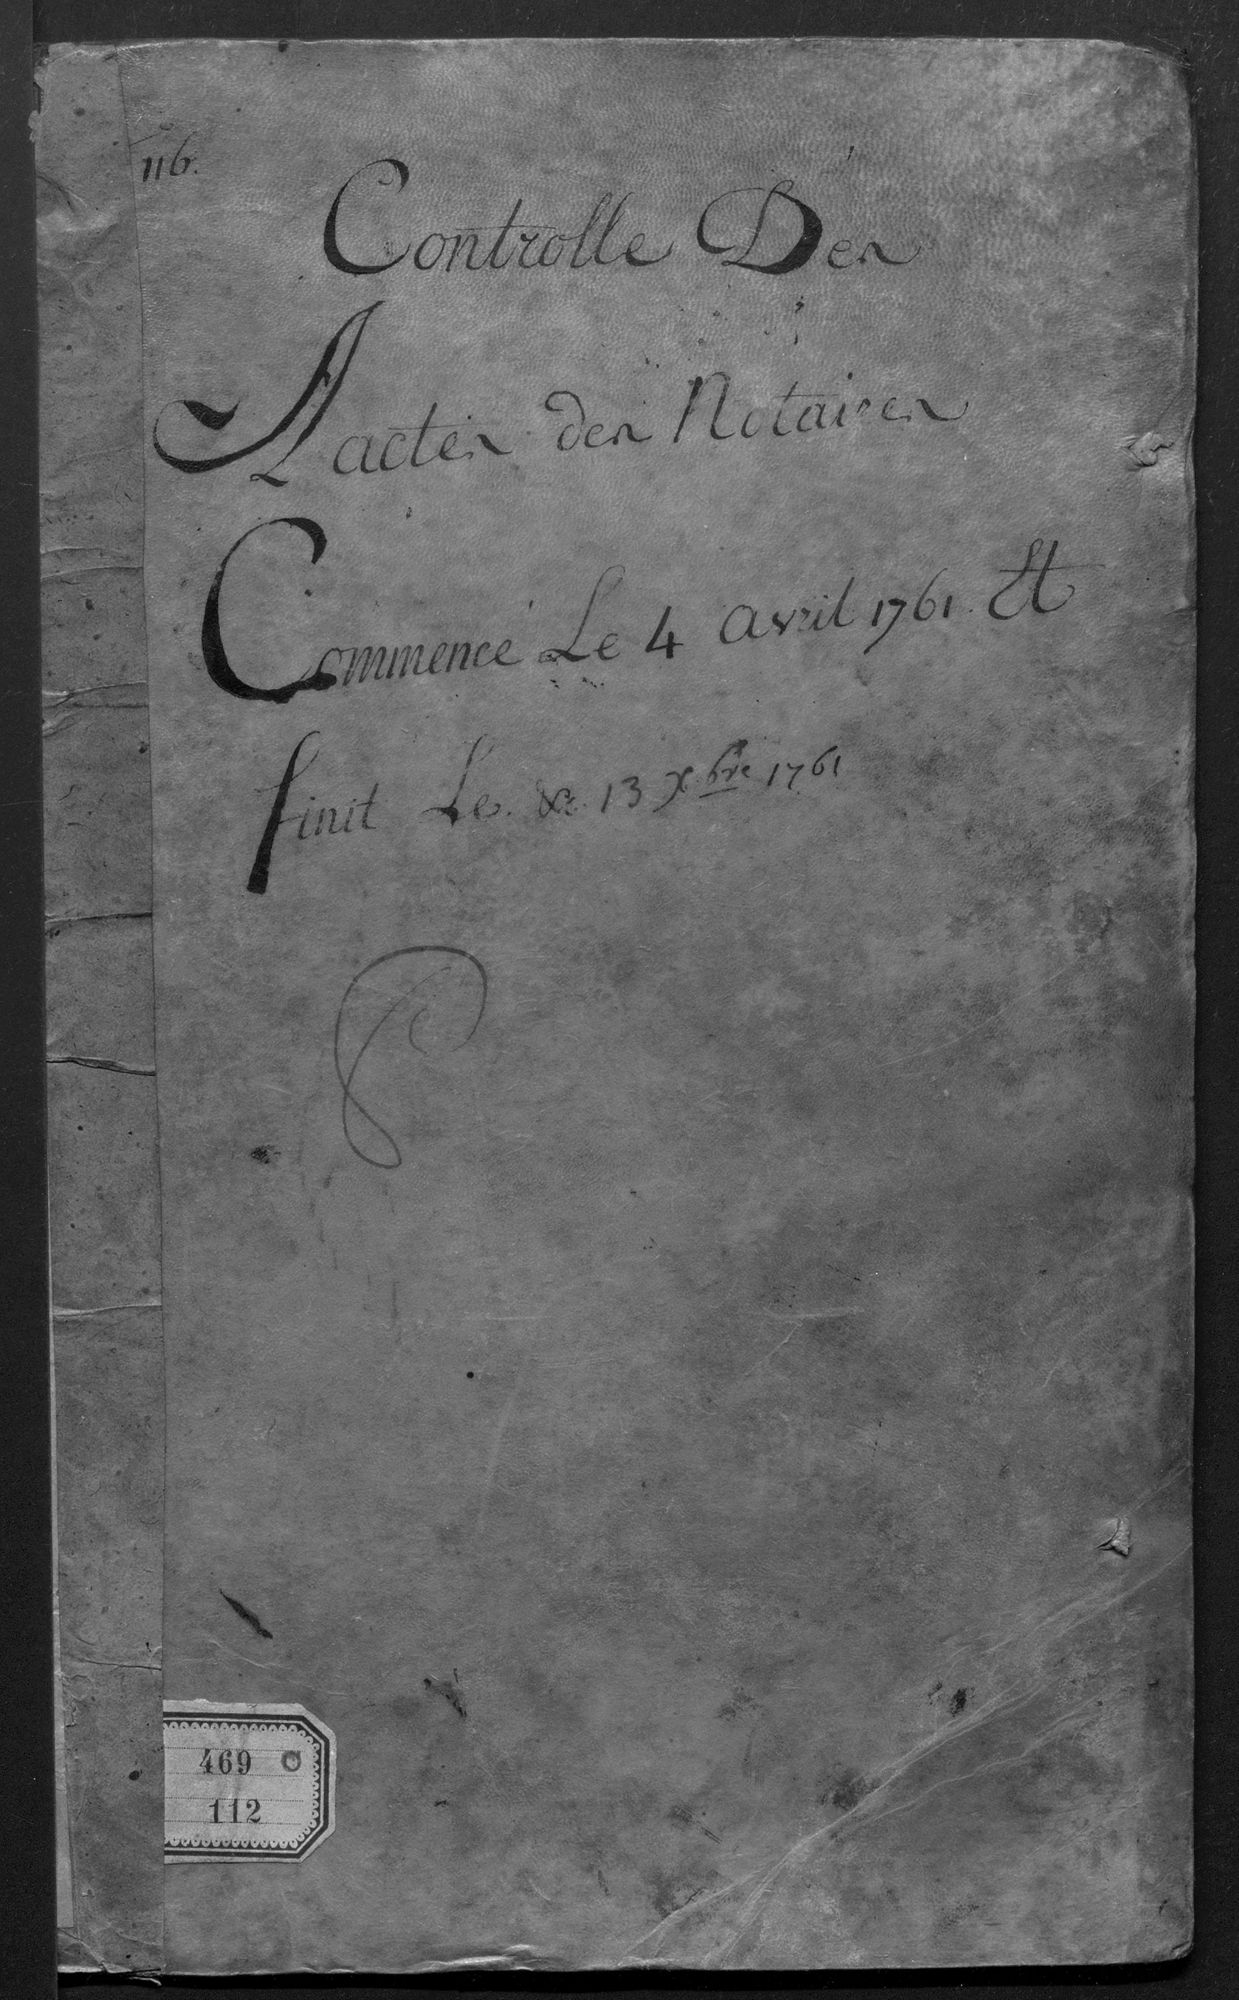 116.
Controlle Des
Aactes des Notaires
Commencé Le 4 avril 1761. Et
finit Le. &c. 13 Xbre 1761
469 C
112